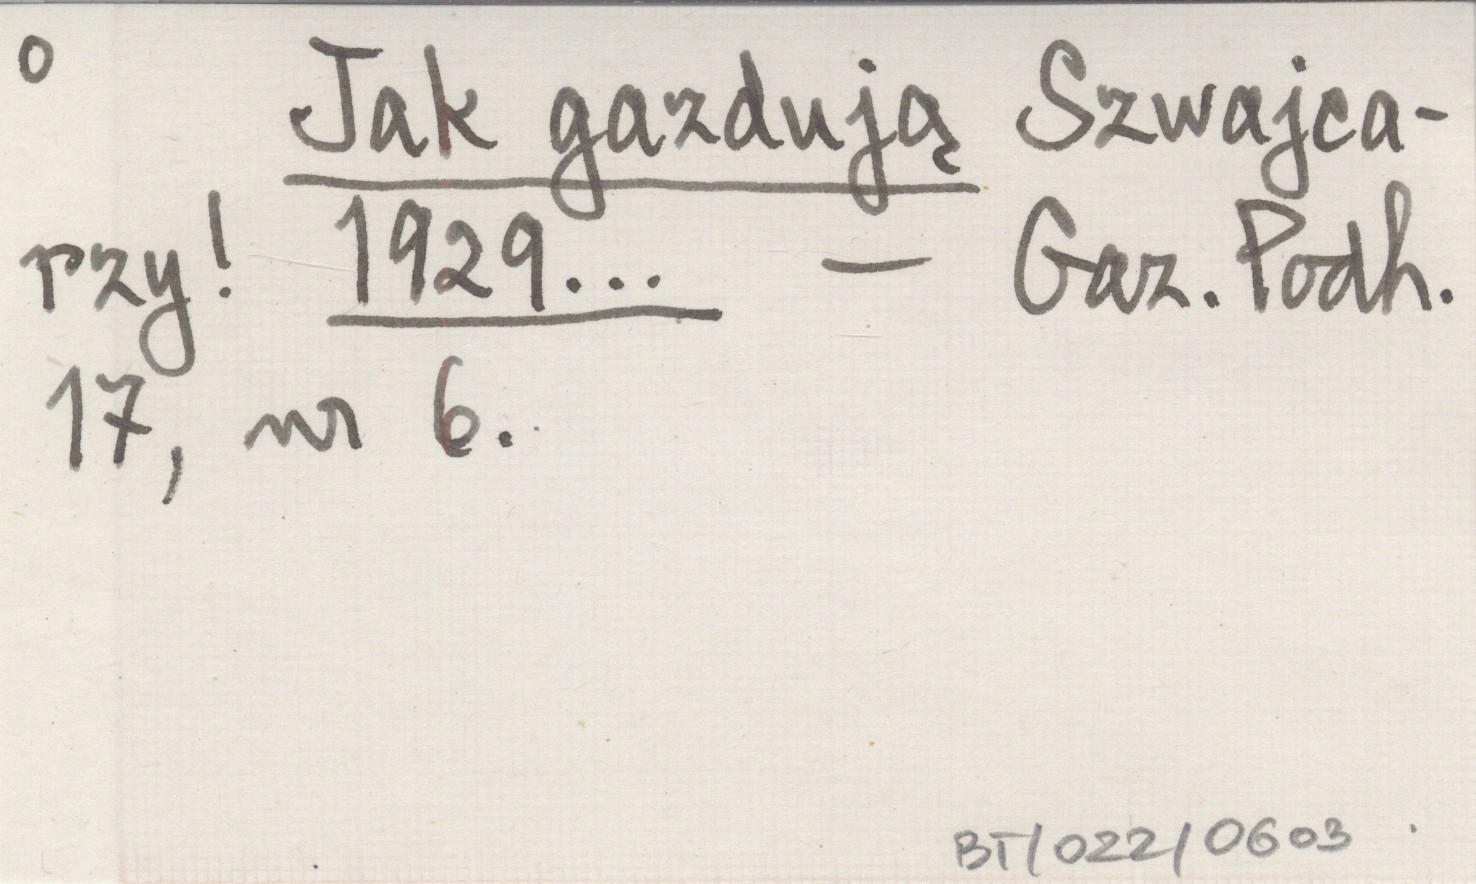 o Jak gazdują Szwajca-
rzy! 1929... — Gaz. Podh.
17, nr 6.
BT/022/0603